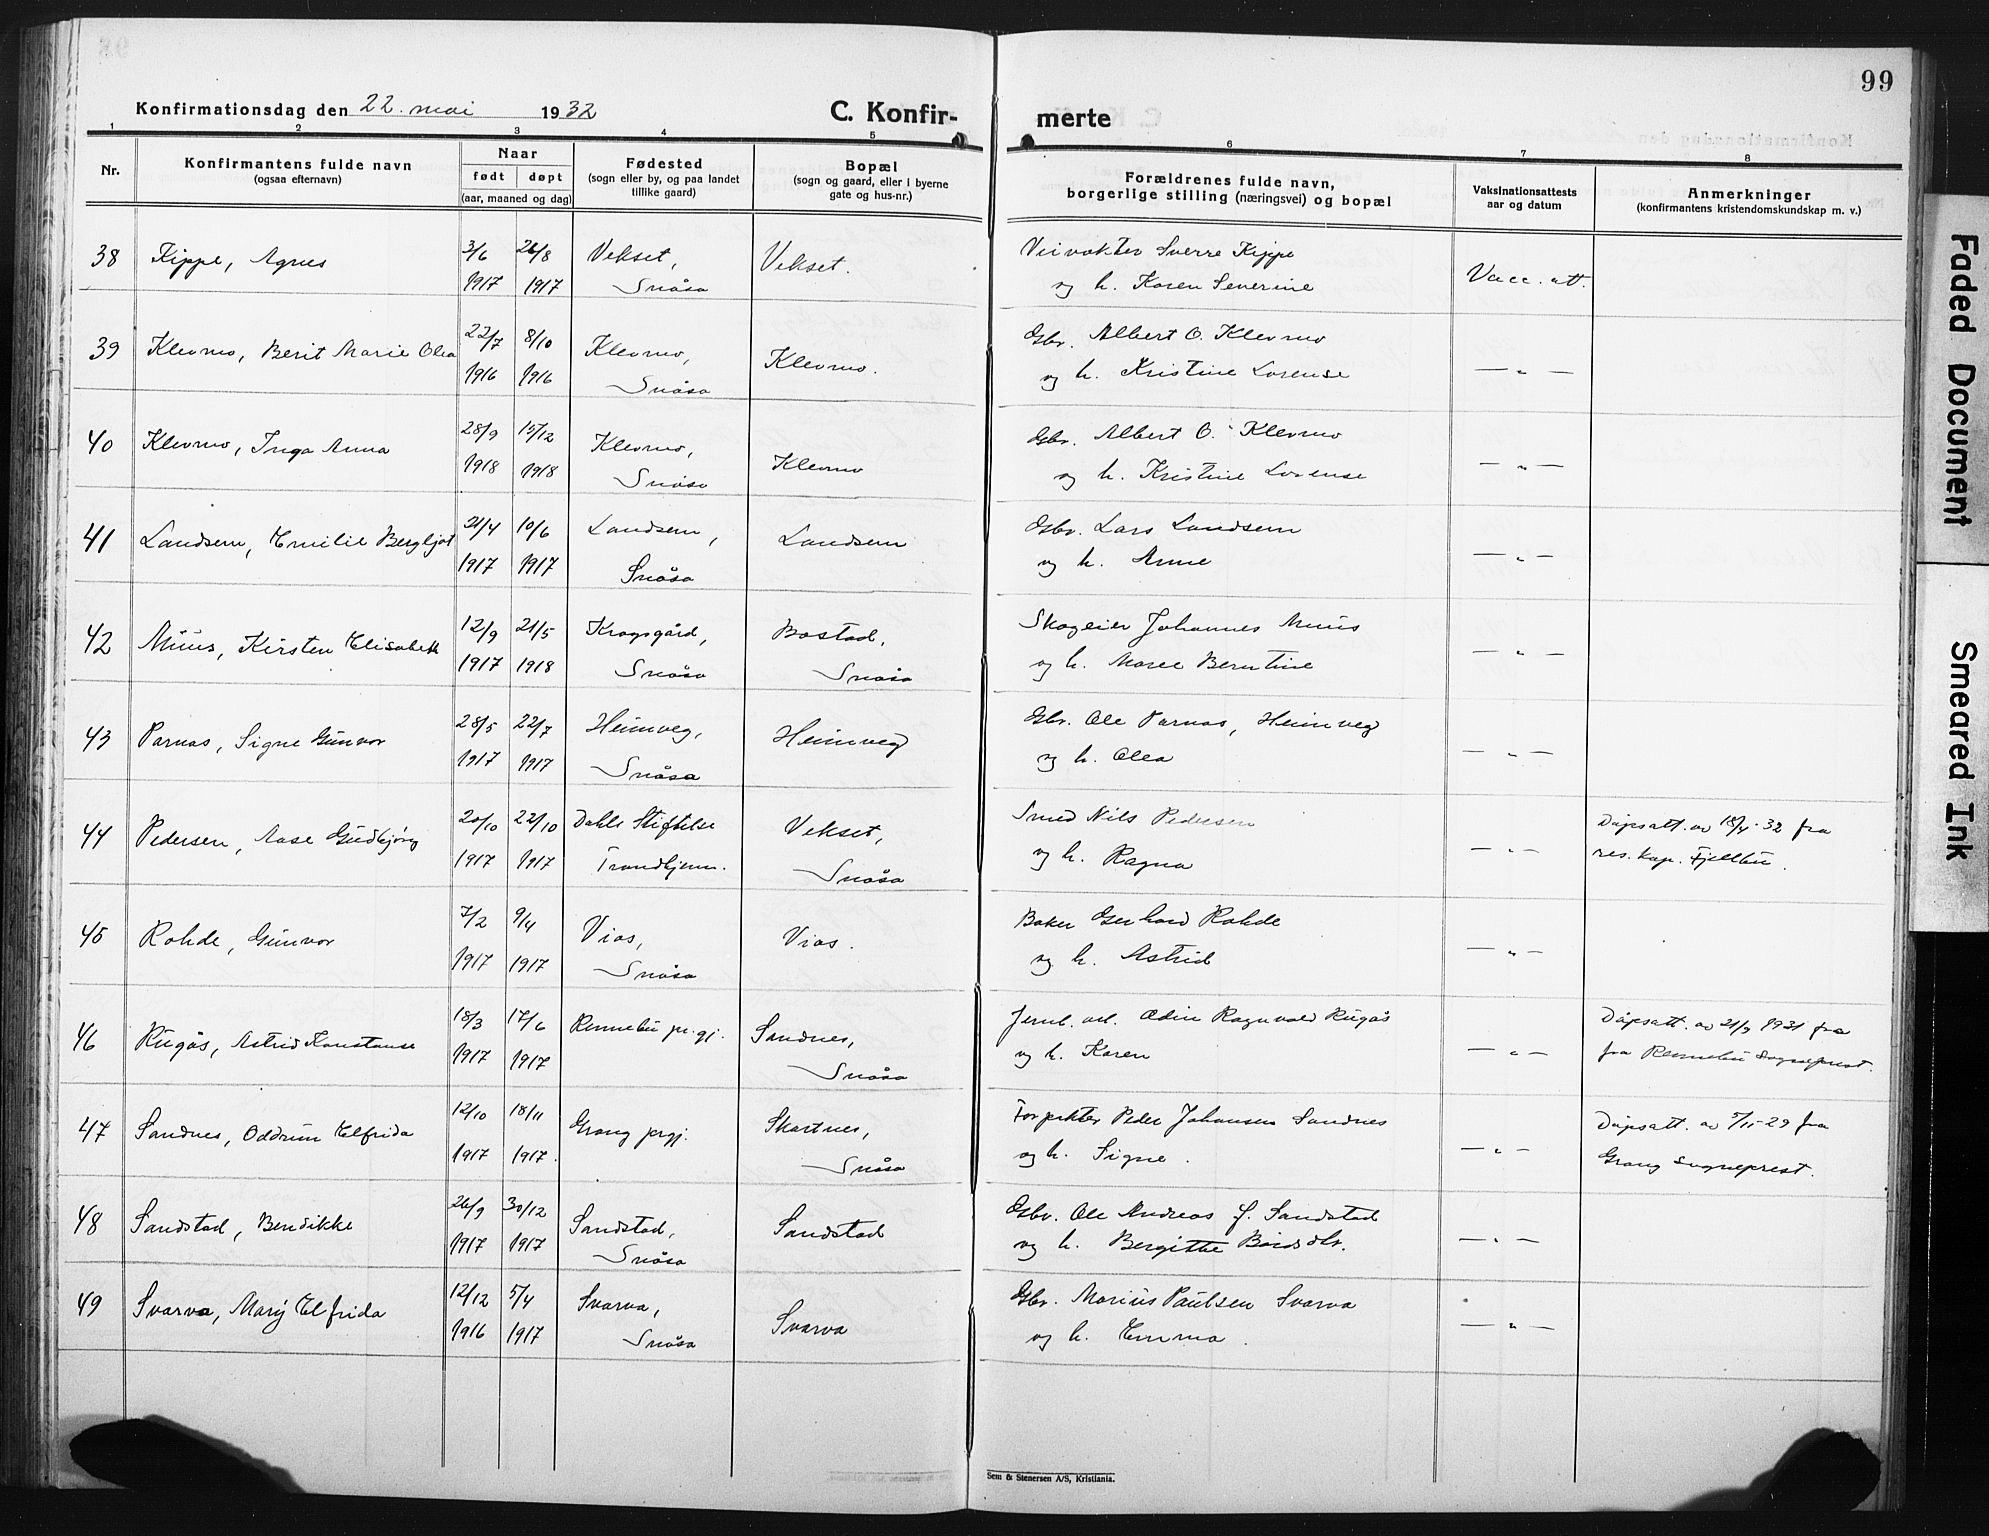 99
Konfirmationsdag den 22. mai 1932
C. Konfir-
merte
1 2 3 4 5 6 7 8
Nr.
Konfirmantens fulde navn
(ogsaa efternavn)
Naar
født døpt
(aar, maaned og dag)
Fødested
(sogn eller by, og paa landet
tillike gaard)
Bopæl
(sogn og gaard, eller i byerne
gate og hus-nr.)
Forældrenes fulde navn,
borgerlige stilling (næringsvei) og bopæl
Vaksinationsattests
aar og datum
Anmerkninger
(konfirmantens kristendomskundskap m. v.)
38 Kippe, Agnes 3/6 26/8 Vekset, Vekset. Veivokter Sverre Kippe
1917 1917 Snåsa og h. Karen Severine Vacc. att.
39 Klevmo, Berit Marie Olea 22/7 8/10 Klevmo, Klevmo. Gbr. Albert O. Klevmo
1916 1916 Snåsa og h. Kristine Lorense — " —
40 Klevmo, Inga Anna 28/9 15/12 Klevmo, Klevmo Gbr. Albert O. Klevmo
1918 1918 Snåsa og h. Kristine Lorense — " —
41 Landsem, Emilie Bergljot 21/4 10/6 Landsem, Landsem Gbr. Lars Landsem
1917 1917 Snåsa og h. Anne — " —
42 Müus, Kirsten Elisabeth 12/9 21/5 Krogsgård, Bostad, Skogeier Johannes Muus
1917 1918 Snåsa Snåsa og h. Maree Berntine — " —
43 Parnas, Signe Gunvor 28/5 22/7 Heimveg, Heimveg Gbr. Ole Parnas, Heimveg
1917 1917 Snåsa og h. Olea — " —
44 Pedersen, Aase Gudbjørg 20/10 22/10 Dahls Stiftelse Vekset, Smed Nils Pedersen Dåpsatt. av 18/4-32 fra
1917 1917 Trondhjem. Snåsa og h. Ragna — " — res. kap. Fjellbu.
45 Rohde, Gunvor 7/2 9/4 Vios, Vios. Baker Gerhard Rohde
1917 1917 Snåsa og h. Astrid — " —
46 Rugås, Astrid Konstanse 18/3 17/6 Rennebu pr.gj. Sandnes, Jernb. arb. Odin Ragnvald Rugås Dåpsatt. av 21/9 1931 fra
1917 1917 Snåsa og h. Karen — " — fra Rennebu Sogneprest.
47 Sandnes, Oddrun Elfrida 12/10 18/11 Grong prgj. Skartnes, Forpakter Peder Johansen Sandnes Dåpsatt. av 5/11-29 fra
1917 1917. Snåsa og h. Signe. — " — Grong Sogneprest.
48 Sandstad, Bendikke 26/9 30/12 Sandstad, Sandstad Gbr. Ole Andreas J. Sandstad
1917 1917 Snåsa og h. Bergitte Bårdsdtr. — " —
49 Svarva, Mary Elfrida 12/12 5/4 Svarva, Svarva Gbr. Marius Paulsen Svarva
1916 1917 Snåsa og h. Emma. — " —
Sem & Stenersen A/S, Kristiania.
Faded Document
Smeared Ink